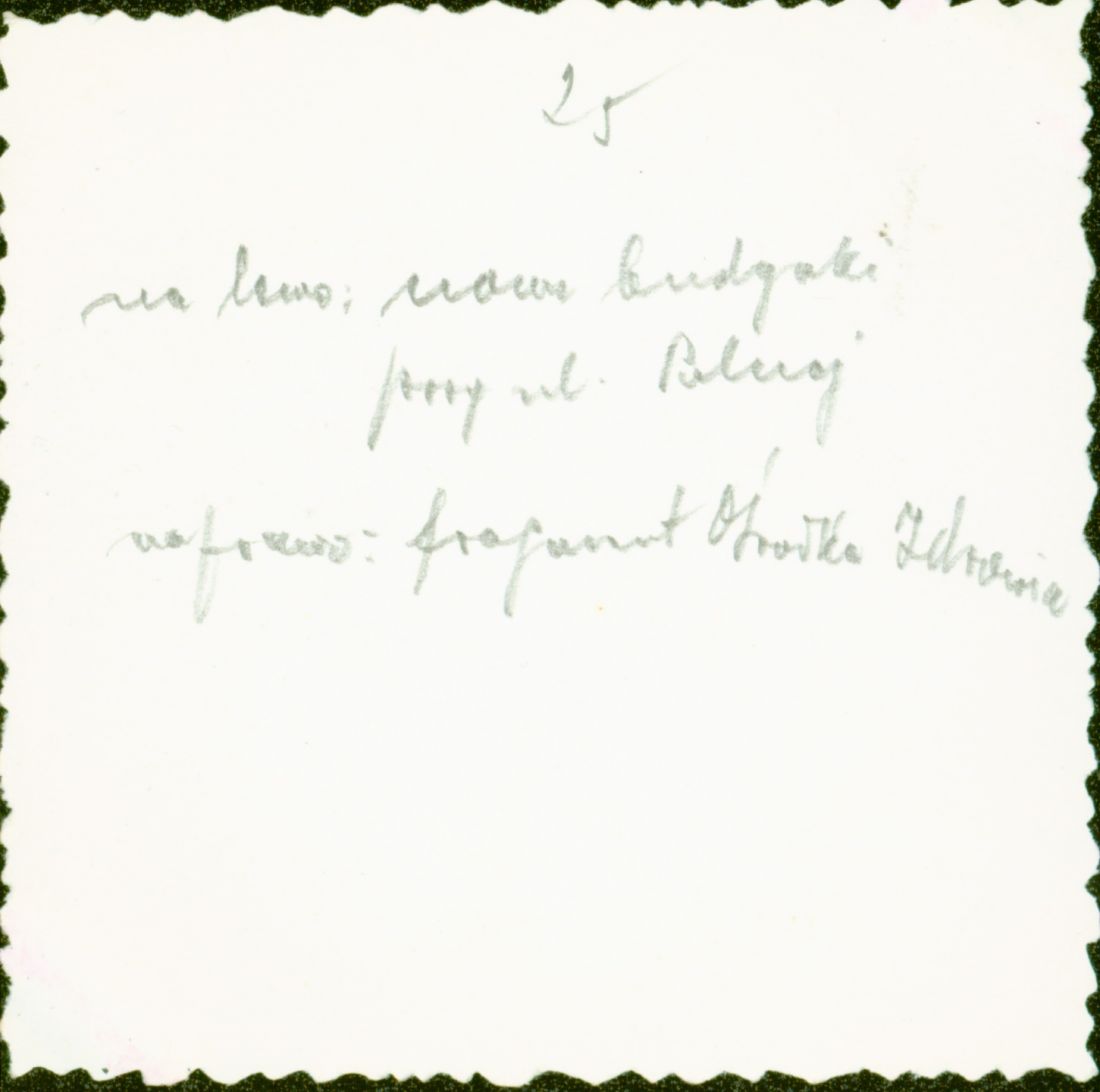 25
na lewo: nowe budynki
przy ul. Polnej
na prawo: fragment Ośrodka Zdrowia